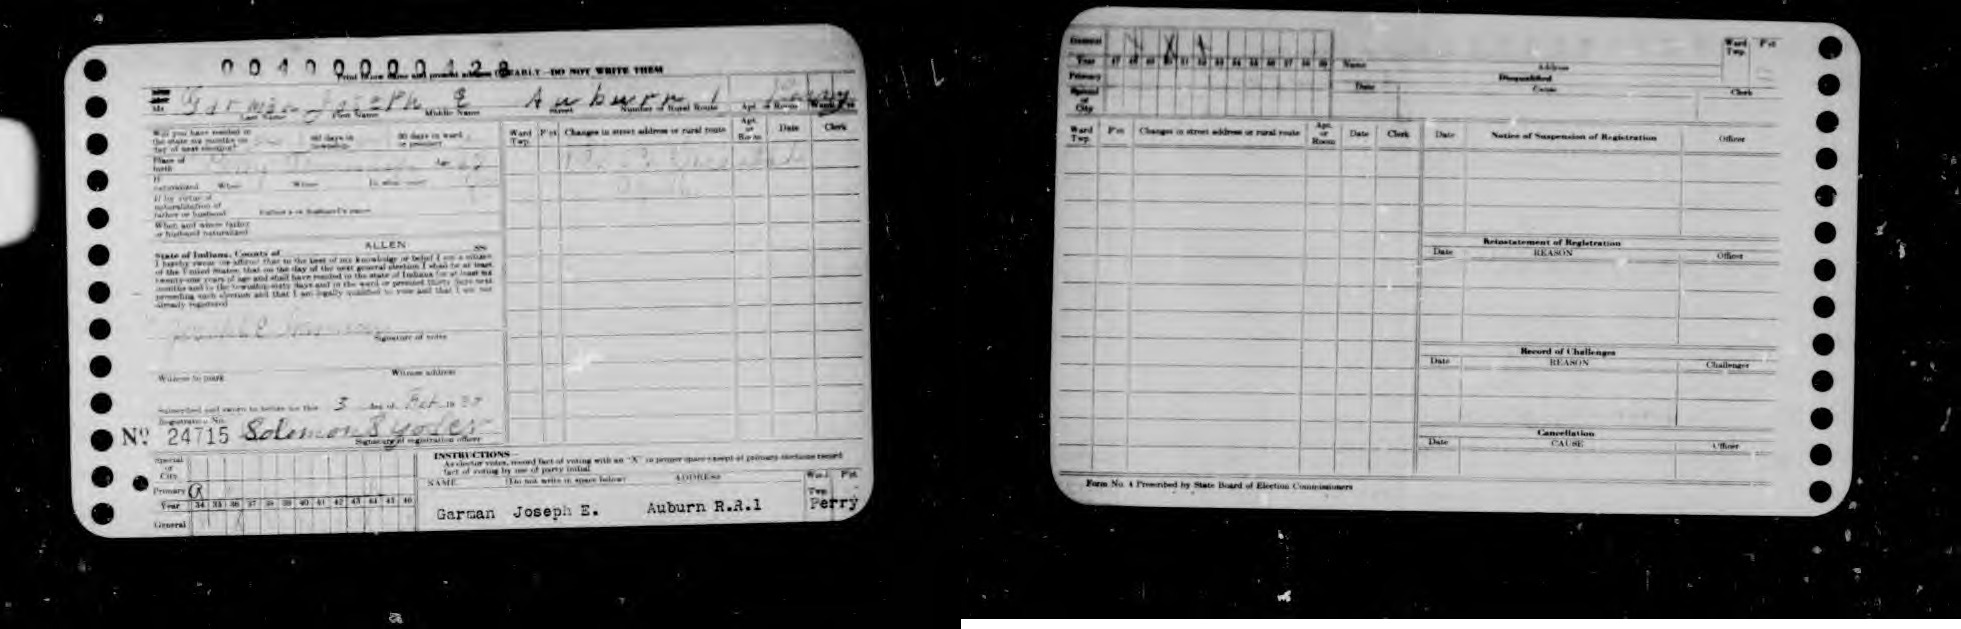 PRINT DO NOT WRITE THEM
Mr Garman Joseph E Auburn 1 Perry
Last Name First Name Middle Name Street Number or Rural Route Apt. or Room Ward Pct
Will you have resided in the state six months on day of next election? 60 days in township 30 days in ward or precinct
Ward Twp. P'ct Changes in street address or rural route Apt. or Room Date Clerk
Place of birth
If naturalized When Where In what court
If by virtue of naturalization of father or husband Father's or husband's name
When and where father or husband naturalized
State of Indiana, County of ALLEN SS
I hereby swear (or affirm) that to the best of my knowledge or belief I am a citizen
of the United States; that on the day of the next general election I shall be at least
twenty-one years of age and shall have resided in the state of Indiana for at least six
months and in the township sixty days and in the ward or precinct thirty days next
preceding such election and that I am legally qualified to vote and that I am not
already registered
Signature of voter
Witness to mark Witness address
Subscribed and sworn to before me this 3 day of 19
Registration No.
Nº 24715 Solomon
Signature of registration officer
Special or City
Primary
Year 34 35 36 37 38 39 40 41 42 43 44 45 46
General
INSTRUCTIONS
As elector votes, record fact of voting with an "X" in proper space except at primary elections record
fact of voting by use of party initial
NAME (Do not write in space below) ADDRESS Ward P'ct
Twp.
Garman Joseph E. Auburn R.R.1 Perry
General
Year 47 48 49 50 51 52 53 54 55 56 57 58 59
Primary
Special or City
Name Address Ward Twp. P'ct
Disqualified
Date Cause Clerk
Ward Twp. P'ct Changes in street address or rural route Apt. or Room Date Clerk
Date Notice of Suspension of Registration Officer
Reinstatement of Registration
Date REASON Officer
Record of Challenges
Date REASON Challenger
Cancellation
Date CAUSE Officer
Form No. 4 Prescribed by State Board of Election Commissioners